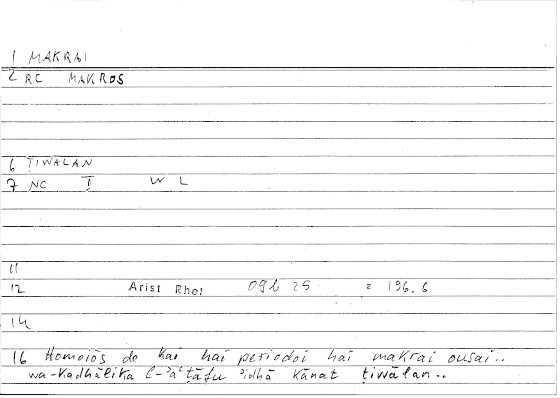 1 MAKRAI
2 RC MAKROS
6 ṬIWĀLAN
7 NC Ṭ W L
11
12 Arist Rhet 09b 25 = 196.6
14
16 Homoiōs de kai hai periodoi hai makrai ousai..
wa-kadhālika l-ʾaʿṭāfu ʾidhā kānat ṭiwālan..